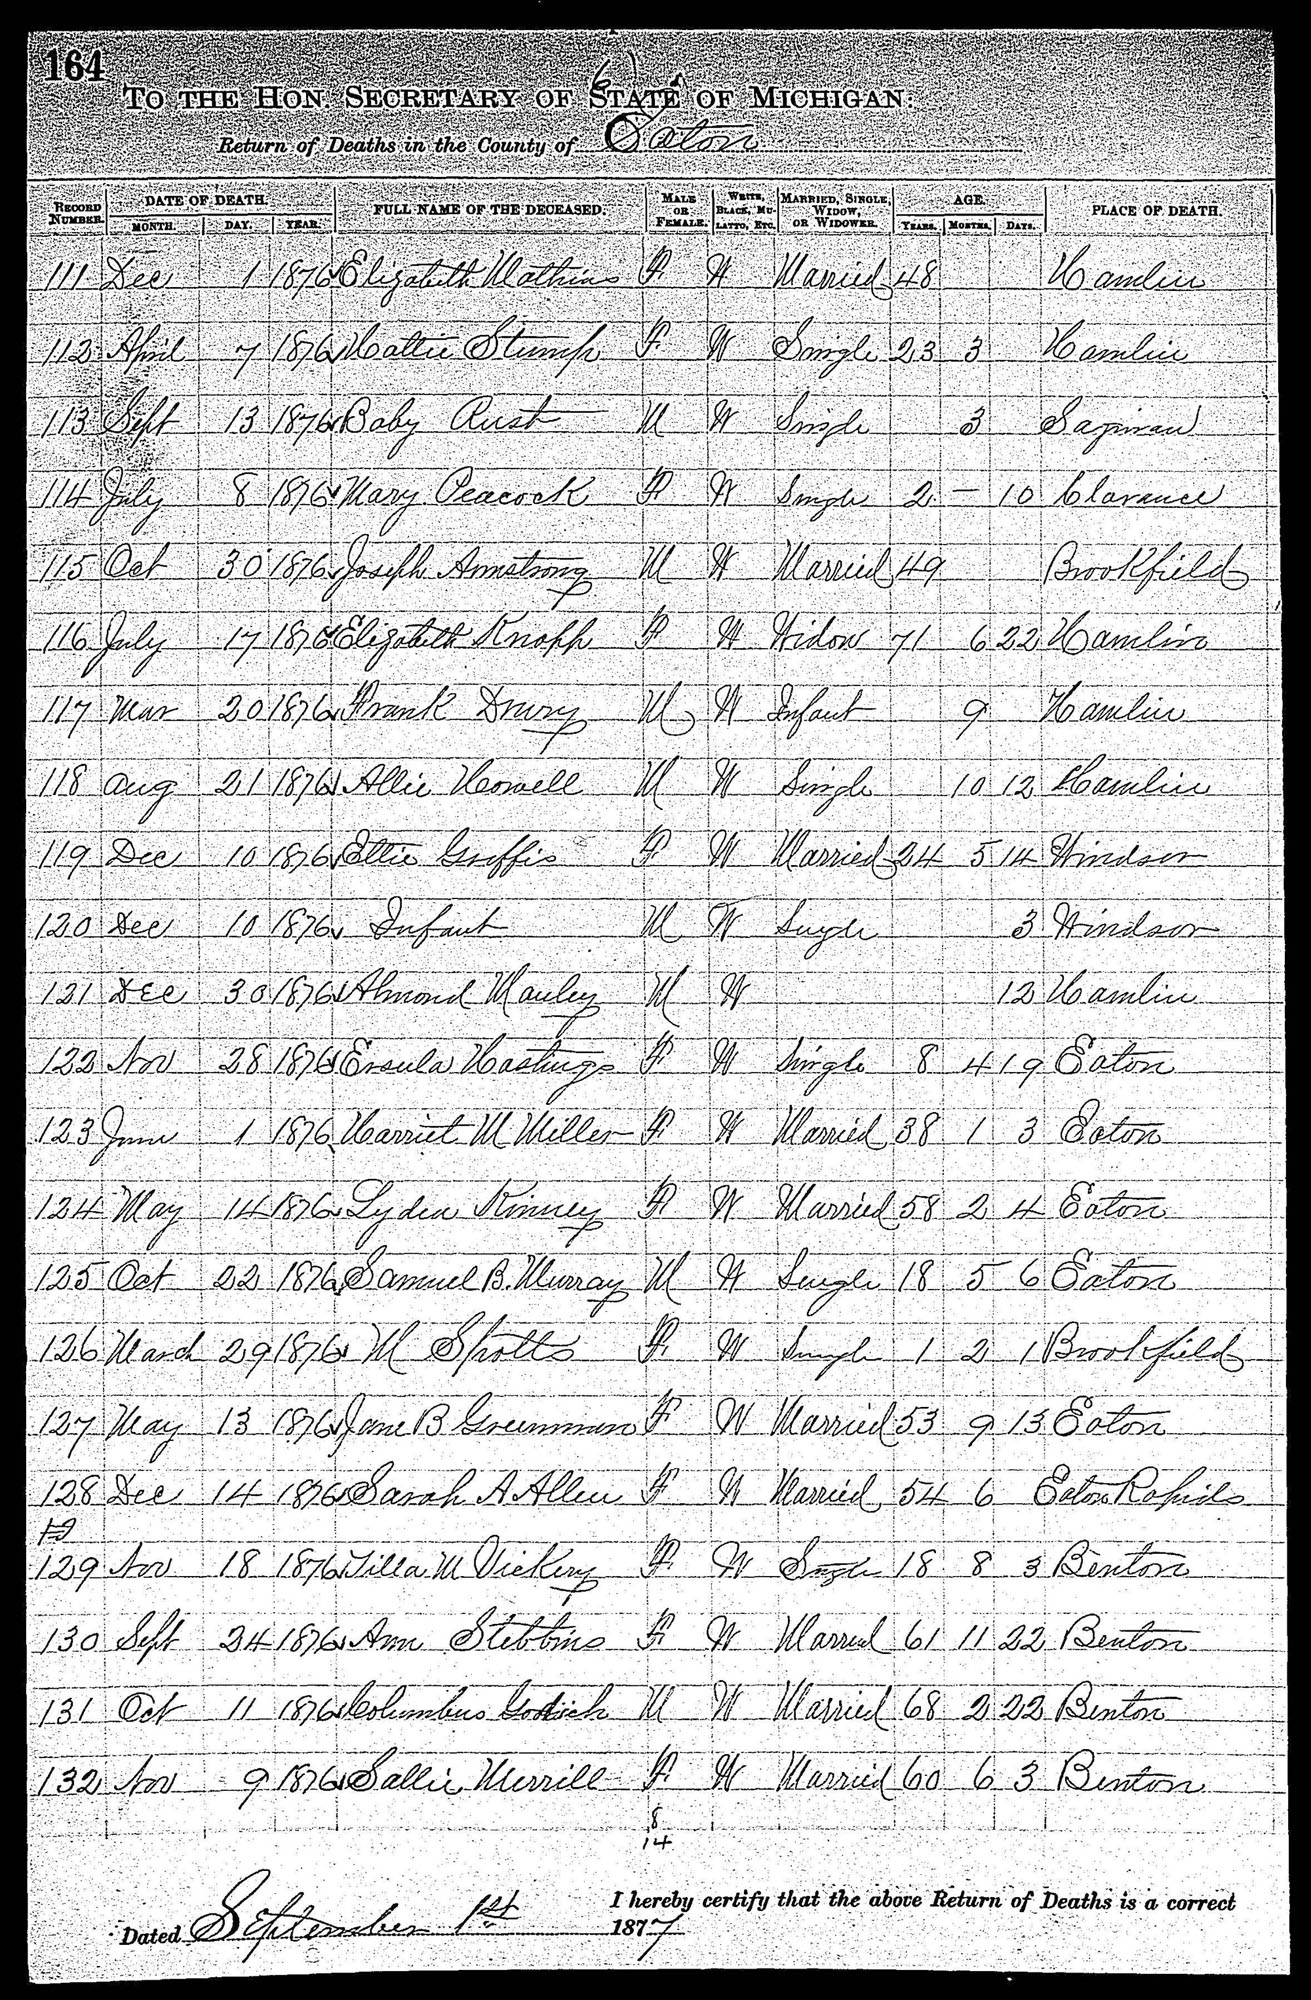 164
6)
TO THE HON. SECRETARY OF STATE OF MICHIGAN:
Return of Deaths in the County of Eaton
RECORD NUMBER. DATE OF DEATH. MONTH. DAY. YEAR. FULL NAME OF THE DECEASED. MALE OR FEMALE. WHITE, BLACK, MULATTO, ETC. MARRIED, SINGLE, WIDOW, OR WIDOWER. AGE. YEARS. MONTHS. DAYS. PLACE OF DEATH.
111 Dec 1 1876 Elizabeth Mathias F W Married 48 Hamlin
112 April 7 1876 Hattie Stump F W Single 23 3 Hamlin
113 Sept 13 1876 Baby Rust M W Single 3 Saginaw
114 July 8 1876 Mary Peacock F W Single 2 — 10 Clarance
115 Oct 30 1876 Joseph Armstrong M W Married 49 Brookfield
116 July 17 1876 Elizabeth Knapp F W Widow 71 6 22 Hamlin
117 Mar 20 1876 Frank Drury M W Infant 9 Hamlin
118 Aug 21 1876 Allie Howell M W Single 10 12 Hamlin
119 Dec 10 1876 Ettie Griffis F W Married 24 5 14 Windsor
120 Dec 10 1876 Infant M W Single 3 Windsor
121 Dec 30 1876 Almond Manley M W 12 Hamlin
122 Nov 28 1876 Ersula Hastings F W Single 8 4 19 Eaton
123 June 1 1876 Harriet M Miller F W Married 38 1 3 Eaton
124 May 14 1876 Lydia Kinney F W Married 58 2 4 Eaton
125 Oct 22 1876 Samuel B. Murray M W Single 18 5 6 Eaton
126 March 29 1876 M Spotts F W Single 1 2 1 Brookfield
127 May 13 1876 Jane B Greenman F W Married 53 9 13 Eaton
128 Dec 14 1876 Sarah A Allen F W Married 54 6 Eaton Rapids
129 Nov 18 1876 Tilla M Vickery F W Single 18 8 3 Benton
130 Sept 24 1876 Ann Stebbins F W Married 61 11 22 Benton
131 Oct 11 1876 Columbus M W Married 68 2 22 Benton
132 Nov 9 1876 Sallie Merrill F W Married 60 6 3 Benton
8
14
I hereby certify that the above Return of Deaths is a correct
Dated September 1st 1877